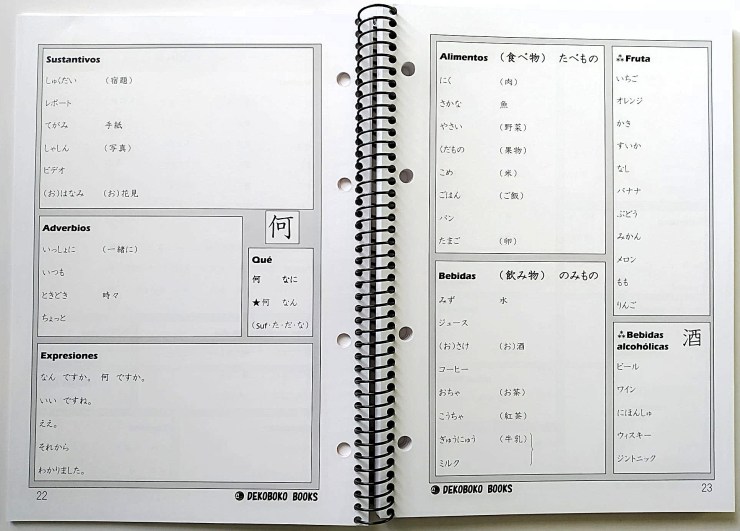 Sustantivos
しゅくだい （宿題）
レポート
てがみ 手紙
しゃしん （写真）
ビデオ
(お)はなみ (お)花見
Adverbios
いっしょに （一緒に）
いつも
ときどき 時々
ちょっと
何
Qué
何 なに
★何 なん
(Suf・た・だ・な)
Expresiones
なん ですか。 何 ですか。
いい ですね。
ええ。
それから
わかりました。
22
DEKOBOKO BOOKS
Alimentos （食べ物） たべもの
にく （肉）
さかな 魚
やさい （野菜）
くだもの （果物）
こめ （米）
ごはん （ご飯）
パン
たまご （卵）
Bebidas （飲み物） のみもの
みず 水
ジュース
(お)さけ (お)酒
コーヒー
おちゃ （お茶）
こうちゃ （紅茶）
ぎゅうにゅう （牛乳）
ミルク
Fruta
いちご
オレンジ
かき
すいか
なし
バナナ
ぶどう
みかん
メロン
もも
りんご
Bebidas
alcohólicas
酒
ビール
ワイン
にほんしゅ
ウィスキー
ジントニック
DEKOBOKO BOOKS
23